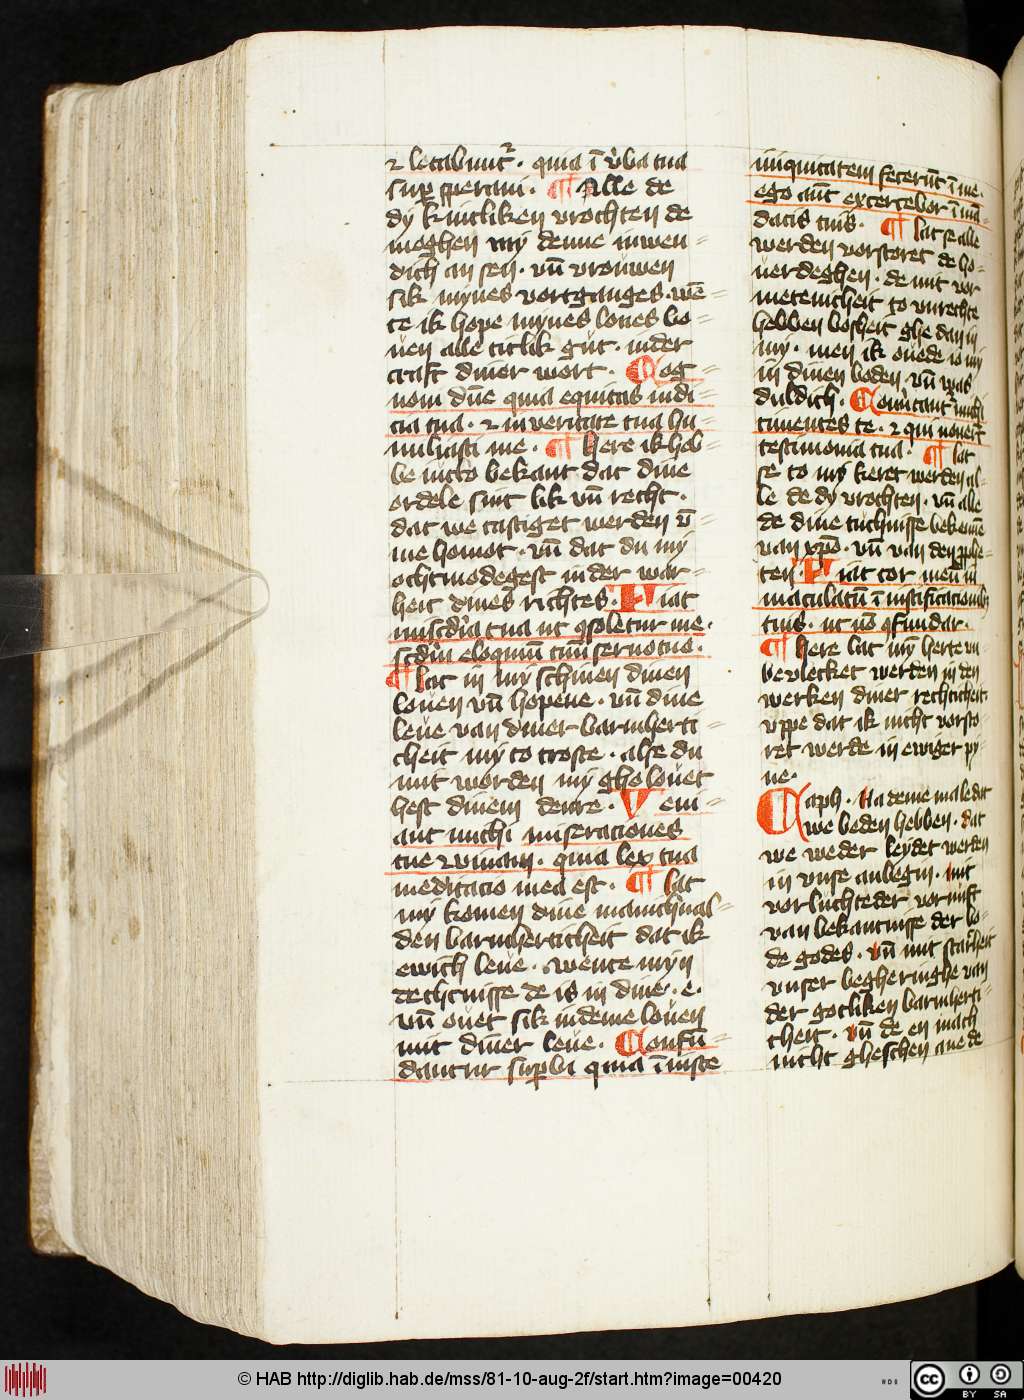 ⁊ letabunt᷑ . quia ī v̓ba tua
suꝑ sperani . ¶ Alle de
dy kintliken vrochten de
moghen my denne inwen=
dich an sen . vn̄ vrouwen
sik mynes vortganges . wē=
te ik hope mynes loues bo=
uen alle titlik gut . in der
craft diner wort . Cog=
noui dn̄e quia equitas iudi=
cia tua . ⁊ in veritate tua hu=
miliasti me . ¶ Here ik heb=
be in to bekant dat dine
ordele sint lik vn̄ recht .
dat we castiget werden v̄=
me homot . vn̄ dat du my
othmodegest in der war=
heit dines richtes . Fiat
mīsc̄dia tua ut ꝯsoletur me .
sc̄d̄m eloquiū tuū seruo tuo .
¶ Lat in my schinen dinen
louen vn̄ hopene . vn̄ dine
leue van diner barmherti=
cheit my to troste . alse du
mit worden my ghelouet
hest dinem denre . Veni=
ant michi miseraciones
tue ⁊ viuam . quia lex tua
meditacio mea est . ¶ Lat
my komen dine mannichual=
den barmherticheit dat ik
ewich leue . wente myn
dechtnisse de is in dine . e .
vn̄ ouet sik in deme louen
mit diner leue . Confū=
dantur suꝑbi quia īiuste
iniquitatem fecerūt ī me .
ego aūt exercebor ī mā=
datis tuis . ¶ Lat se alle
werden vorstoret de ho=
uerdeghen . de mit vor
metenicheit to vnrechte
hebben bosheit ghedan in
my . men ik ouede io my
in dinen boden . vn̄ was
duldich . Conūtant᷑ michi
timentes te . ⁊ qui nouerūt
testimonia tua . ¶ Lat
se to my keret werden al=
le de dy vrochten . vn̄ alle
de dine tuchnisse bekenē
van xp̄o . vn̄ van den ꝓphe=
ten . Fiat cor meū in
maculatū ī iustificacionibꝫ
tuis . ut nō ꝯfundar .
¶ Here lat my herte vn=
beulecket werden in den
werken diner rechticheit .
vppe dat ik nicht vorsto=
ret werde in ewiger py=
ne .
Caph . Na deme male dat
we boden hebben . dat
we weder leydet werden
in vnse anbegin . mit
vorluchteder vornuft
van bekantnisse der bo=
de godes . vn̄ mit starheit
vnser begheringhe van
der gotliken barmherti=
cheit . vn̄ de en mach
nicht gheschen ane de
© HAB http://diglib.hab.de/mss/81-10-aug-2f/start.htm?image=00420
cc BY SA